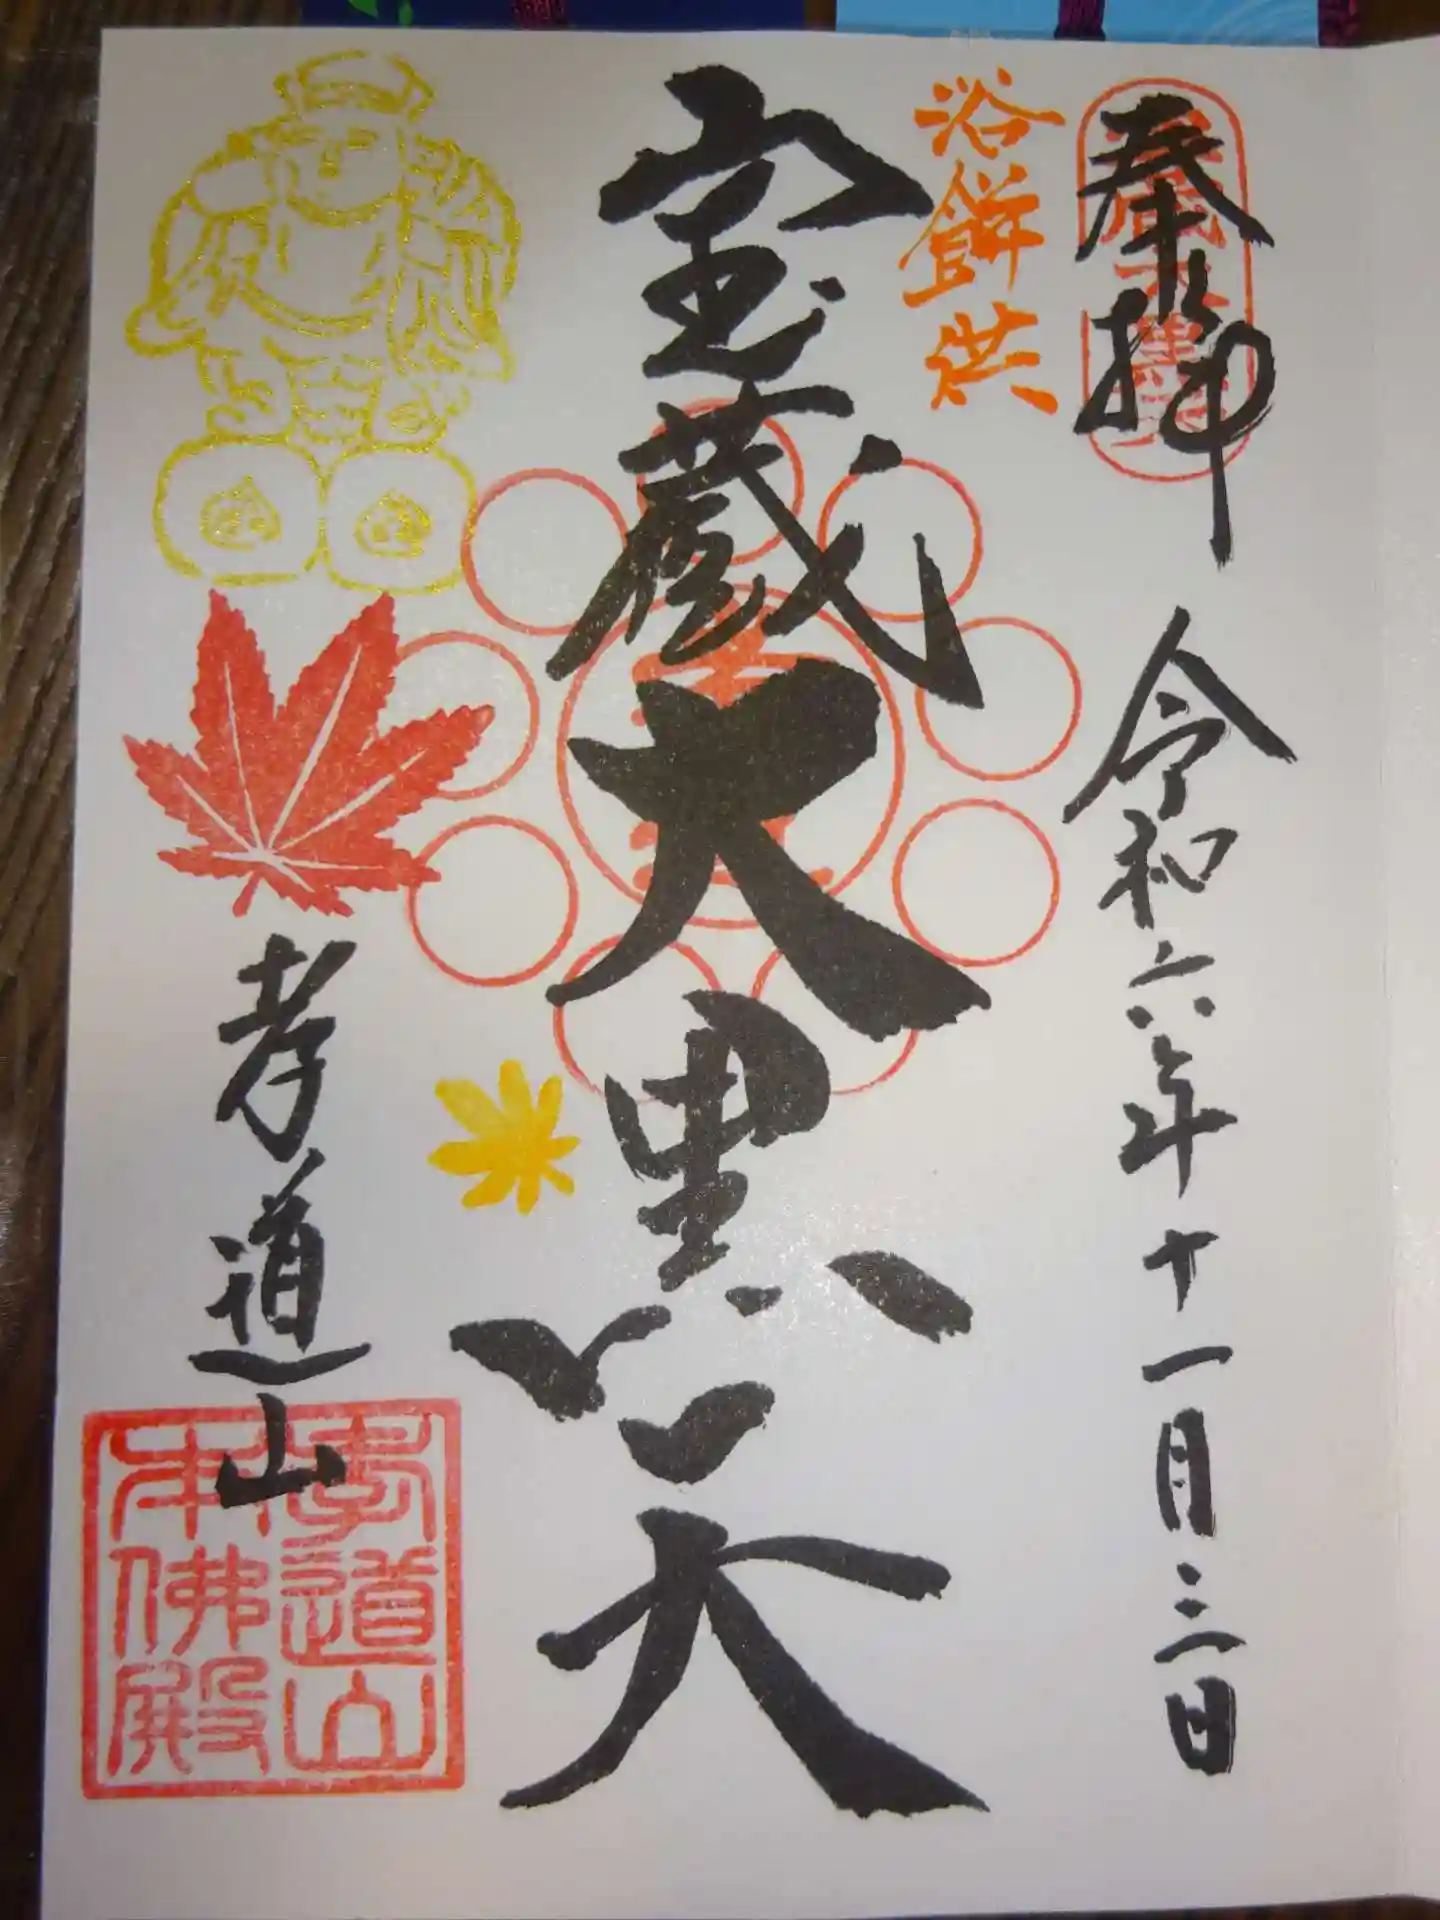 奉拝
令和六年十一月三日
浴餅供
宝蔵大黒天
孝道山
孝道山
本佛殿